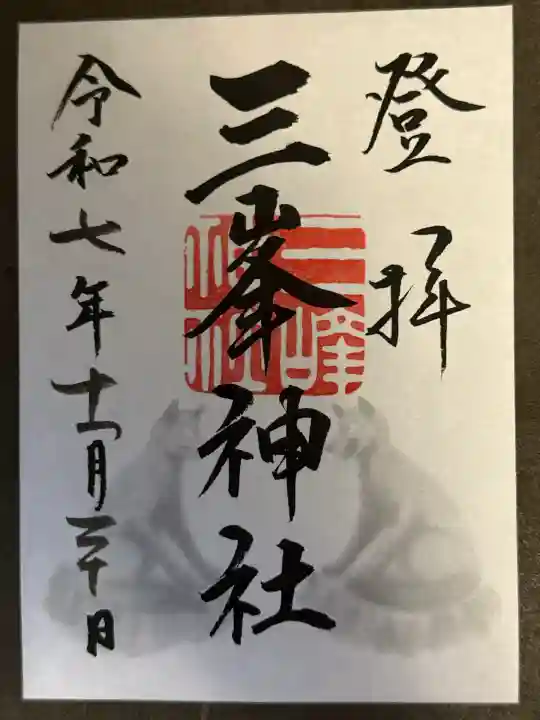 登拝
三峯神社
三峰
神社
令和七年十一月三十日